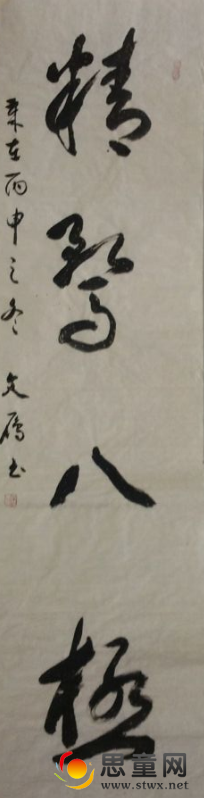 精骛八极
岁在丙申之冬 文雁书
思童网
www.stwx.net